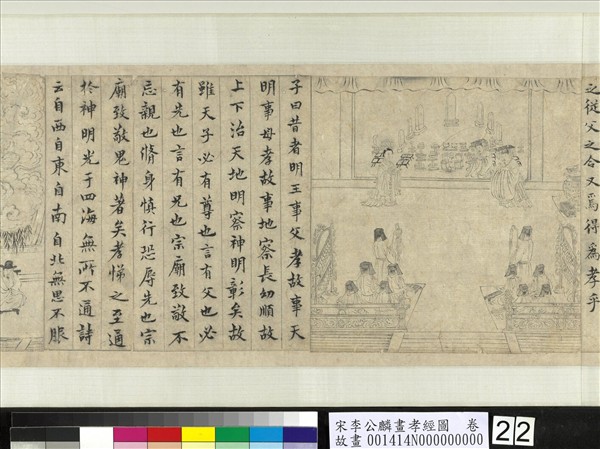 之從父之令又爲得爲孝乎
子曰昔者明王事父孝故事天
明事母孝故事地察長幼順故
上下治天地明察神明彰矣故
雖天子必有尊也言有父也必
有先也言有兄也宗廟致敬不
忘親也脩身慎行恐辱先也宗
廟致敬鬼神著矣孝悌之至通
於神明光于四海無所不通詩
云自西自東自南自北無思不服
宋李公麟畫孝經圖 卷
故畫 001414N000000000
22